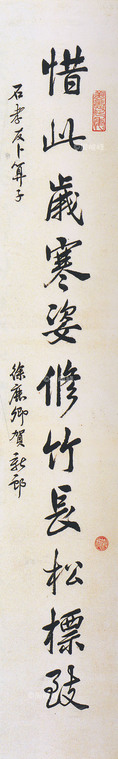 惜此歲寒姿修竹長松標致
石孝友卜算子
徐鹿卿賀新郎